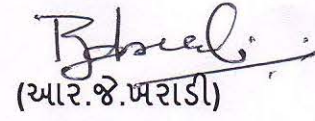 (આર.જે.ખરાડી)